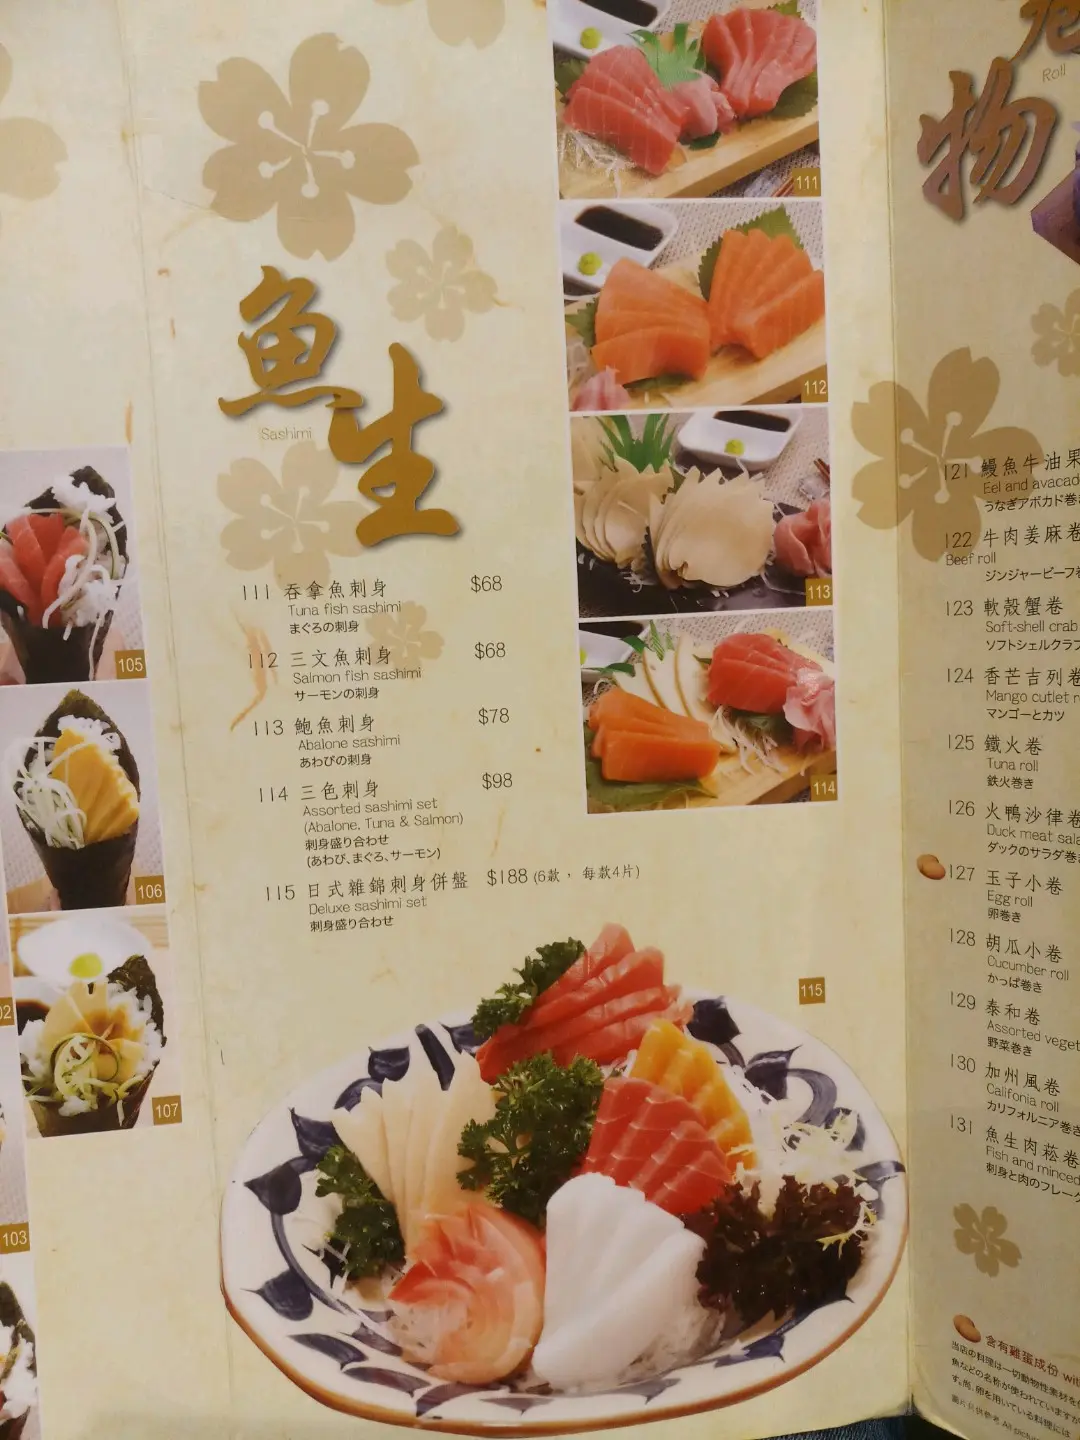 105
106
02
107
103
魚生
Sashimi
111 吞拿魚刺身 $68
Tuna fish sashimi
まぐろの刺身
112 三文魚刺身 $68
Salmon fish sashimi
サーモンの刺身
113 鮑魚刺身 $78
Abalone sashimi
あわびの刺身
114 三色刺身 $98
Assorted sashimi set
(Abalone, Tuna & Salmon)
刺身盛り合わせ
(あわび、まぐろ、サーモン)
115 日式雜錦刺身併盤 $188 (6款， 每款4片)
Deluxe sashimi set
刺身盛り合わせ
111
112
113
114
115
物
Roll
121 鰻魚牛油果
Eel and avacad
うなぎアボカド巻き
122 牛肉姜麻卷
Beef roll
ジンジャービーフ巻
123 軟殼蟹卷
Soft-shell crab
ソフトシェルクラブ
124 香芒吉列卷
Mango cutlet r
マンゴーとカツ
125 鐵火卷
Tuna roll
鉄火巻き
126 火鴨沙律卷
Duck meat sala
ダックのサラダ巻き
127 玉子小卷
Egg roll
卵巻き
128 胡瓜小卷
Cucumber roll
かっぱ巻き
129 泰和卷
Assorted veget
野菜巻き
130 加州風卷
Califonia roll
カリフォルニア巻き
131 魚生肉菘卷
Fish and minced
刺身と肉のフレーク
含有雞蛋成份 wit
当店の料理は一切動物性素材を
魚などの名称が使われていますが
す。尚、卵を用いている料理には
圖片只供參考 All pictur